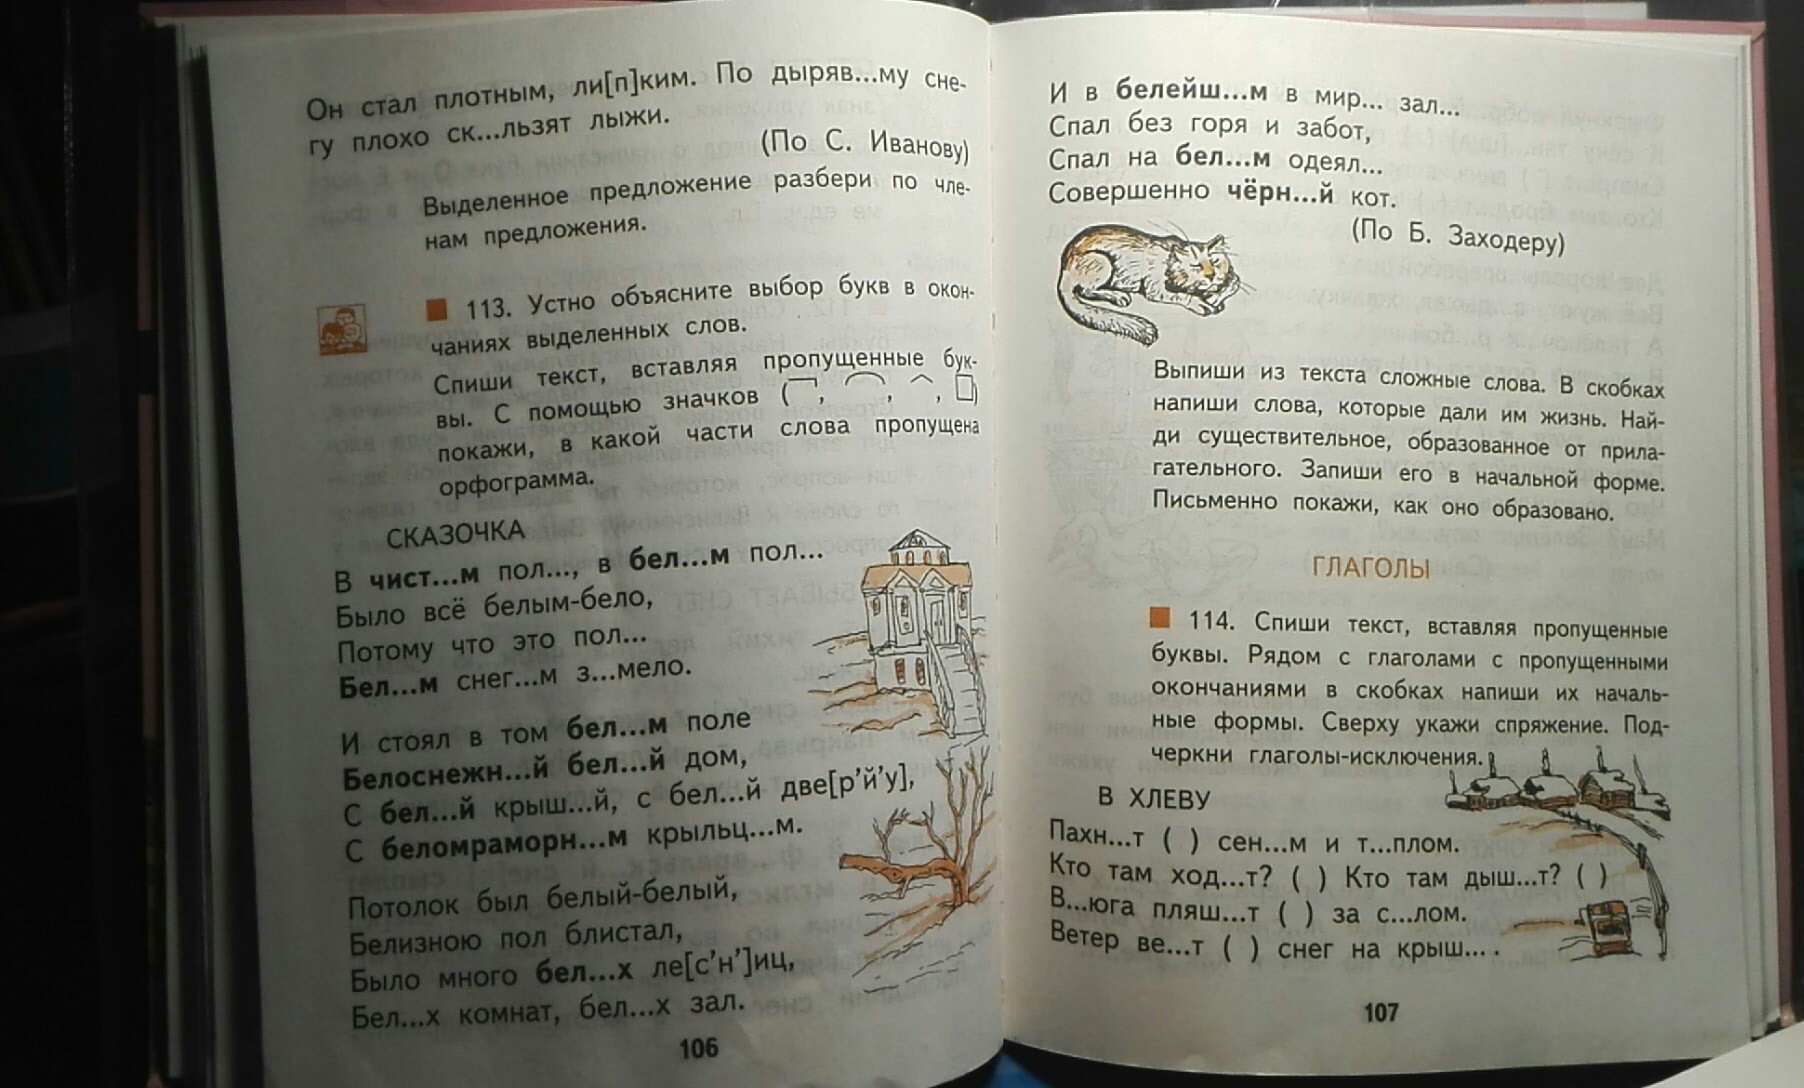 Он стал плотным, ли[п]ким. По дыряв...му сне-
гу плохо ск...льзят лыжи.
(По С. Иванову)
Выделенное предложение разбери по чле-
нам предложения.
113. Устно объясните выбор букв в окон-
чаниях выделенных слов.
Спиши текст, вставляя пропущенные бук-
вы. С помощью значков ( , , , )
покажи, в какой части слова пропущена
орфограмма.
СКАЗОЧКА
В чист...м пол..., в бел...м пол...
Было всё белым-бело,
Потому что это пол...
Бел...м снег...м з...мело.
И стоял в том бел...м поле
Белоснежн...й бел...й дом,
С бел...й крыш...й, с бел...й две[р’й’у],
С беломраморн...м крыльц...м.
Потолок был белый-белый,
Белизною пол блистал,
Было много бел...х ле[с’н’]иц,
Бел...х комнат, бел...х зал.
106
И в белейш...м в мир... зал...
Спал без горя и забот,
Спал на бел...м одеял...
Совершенно чёрн...й кот.
(По Б. Заходеру)
Выпиши из текста сложные слова. В скобках
напиши слова, которые дали им жизнь. Най-
ди существительное, образованное от прила-
гательного. Запиши его в начальной форме.
Письменно покажи, как оно образовано.
ГЛАГОЛЫ
114. Спиши текст, вставляя пропущенные
буквы. Рядом с глаголами с пропущенными
окончаниями в скобках напиши их началь-
ные формы. Сверху укажи спряжение. Под-
черкни глаголы-исключения.
В ХЛЕВУ
Пахн...т ( ) сен...м и т...плом.
Кто там ход...т? ( ) Кто там дыш...т? ( )
В...юга пляш...т ( ) за с...лом.
Ветер ве...т ( ) снег на крыш... .
107